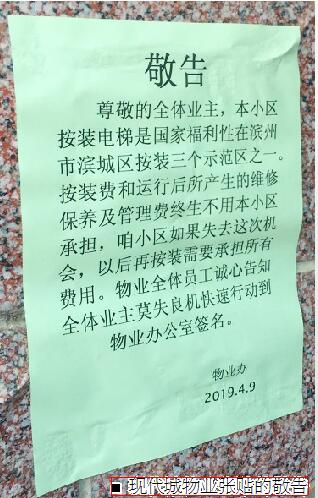 敬告
尊敬的全体业主，本小区
按装电梯是国家福利性在滨州
市滨城区按装三个示范区之一。
按装费和运行后所产生的维修
保养及管理费终生不用本小区
承担，咱小区如果失去这次机
会，以后再按装需要承担所有
费用。物业全体员工诚心告知
全体业主莫失良机快速行动到
物业办公室签名。
物业办
2019.4.9
■ 现代城物业张贴的敬告